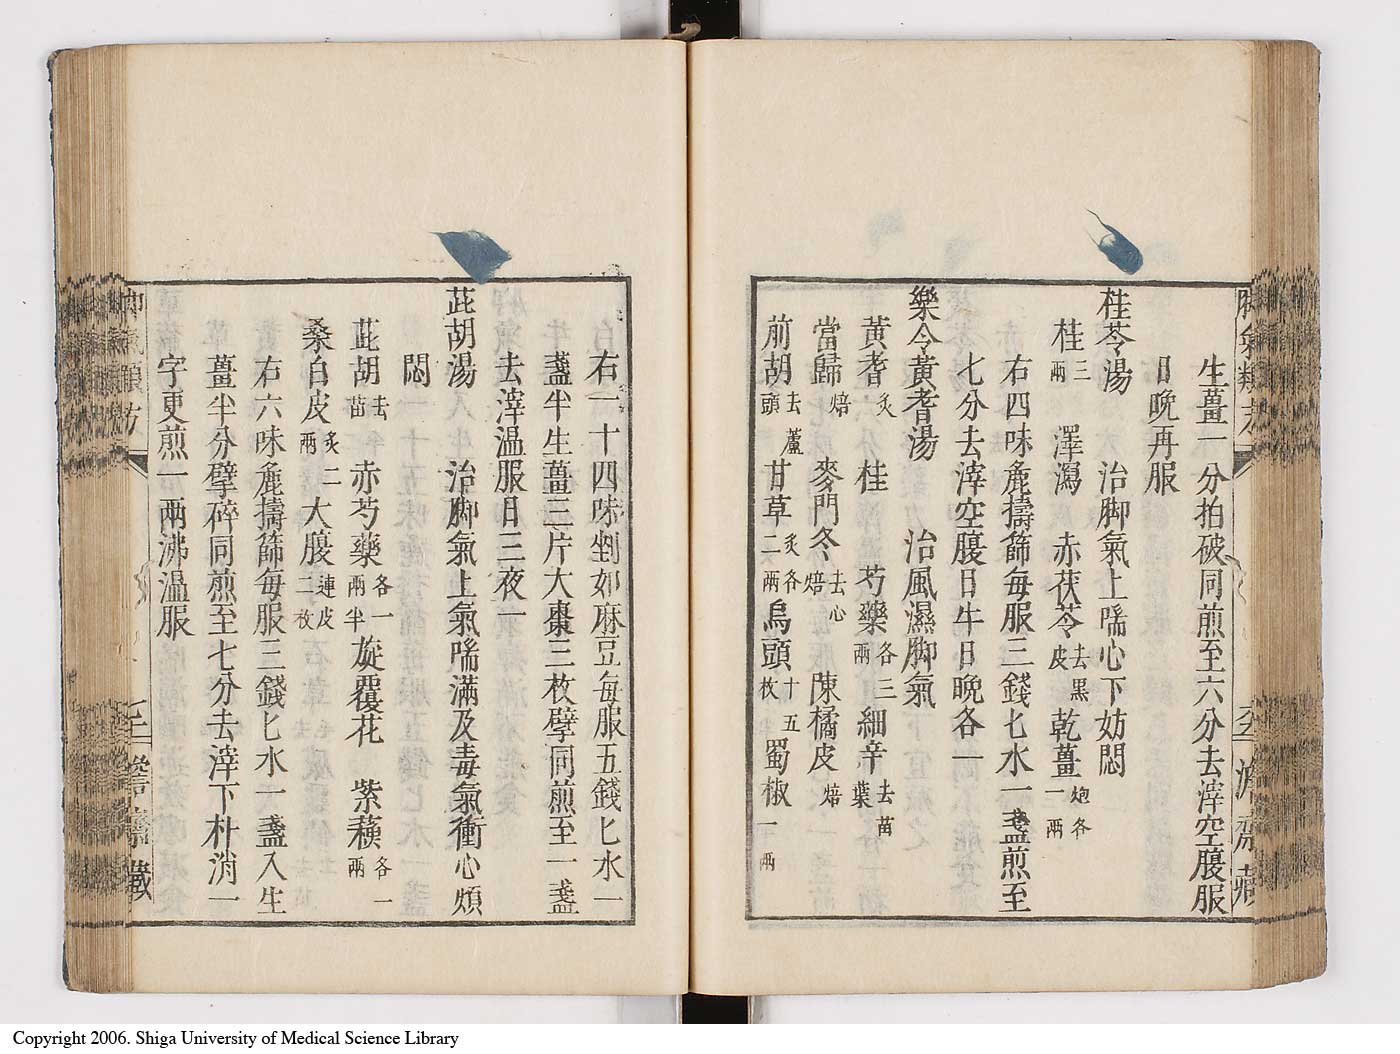 生薑一分拍破同煎至六分去滓空腹服
日晩再服
桂苓湯　治脚氣上喘心下妨悶
桂三兩　澤瀉　赤茯苓去黑皮　乾薑炮各一兩
右四味麁擣篩每服三錢匕水一盞煎至
七分去滓空腹日午日晩各一
樂令黃耆湯　治風濕脚氣
黃耆炙　桂　芍藥各三兩　細辛去苗葉
當歸焙　麥門冬去心焙　陳橘皮焙
前胡去蘆頭　甘草炙各二兩　烏頭十五枚　蜀椒一兩
右一十四味剉如麻豆每服五錢匕水一
盞半生薑三片大棗三枚擘同煎至一盞
去滓温服日三夜一
茈胡湯　治脚氣上氣喘滿及毒氣衝心煩
悶
茈胡去苗　赤芍藥各一兩半　旋覆花　紫蘇各一兩
桑白皮炙二兩　大腹連皮二枚
右六味麁擣篩每服三錢匕水一盞入生
薑半分擘碎同煎至七分去滓下朴消一
字更煎一兩沸温服
Copyright 2006. Shiga University of Medical Science Library